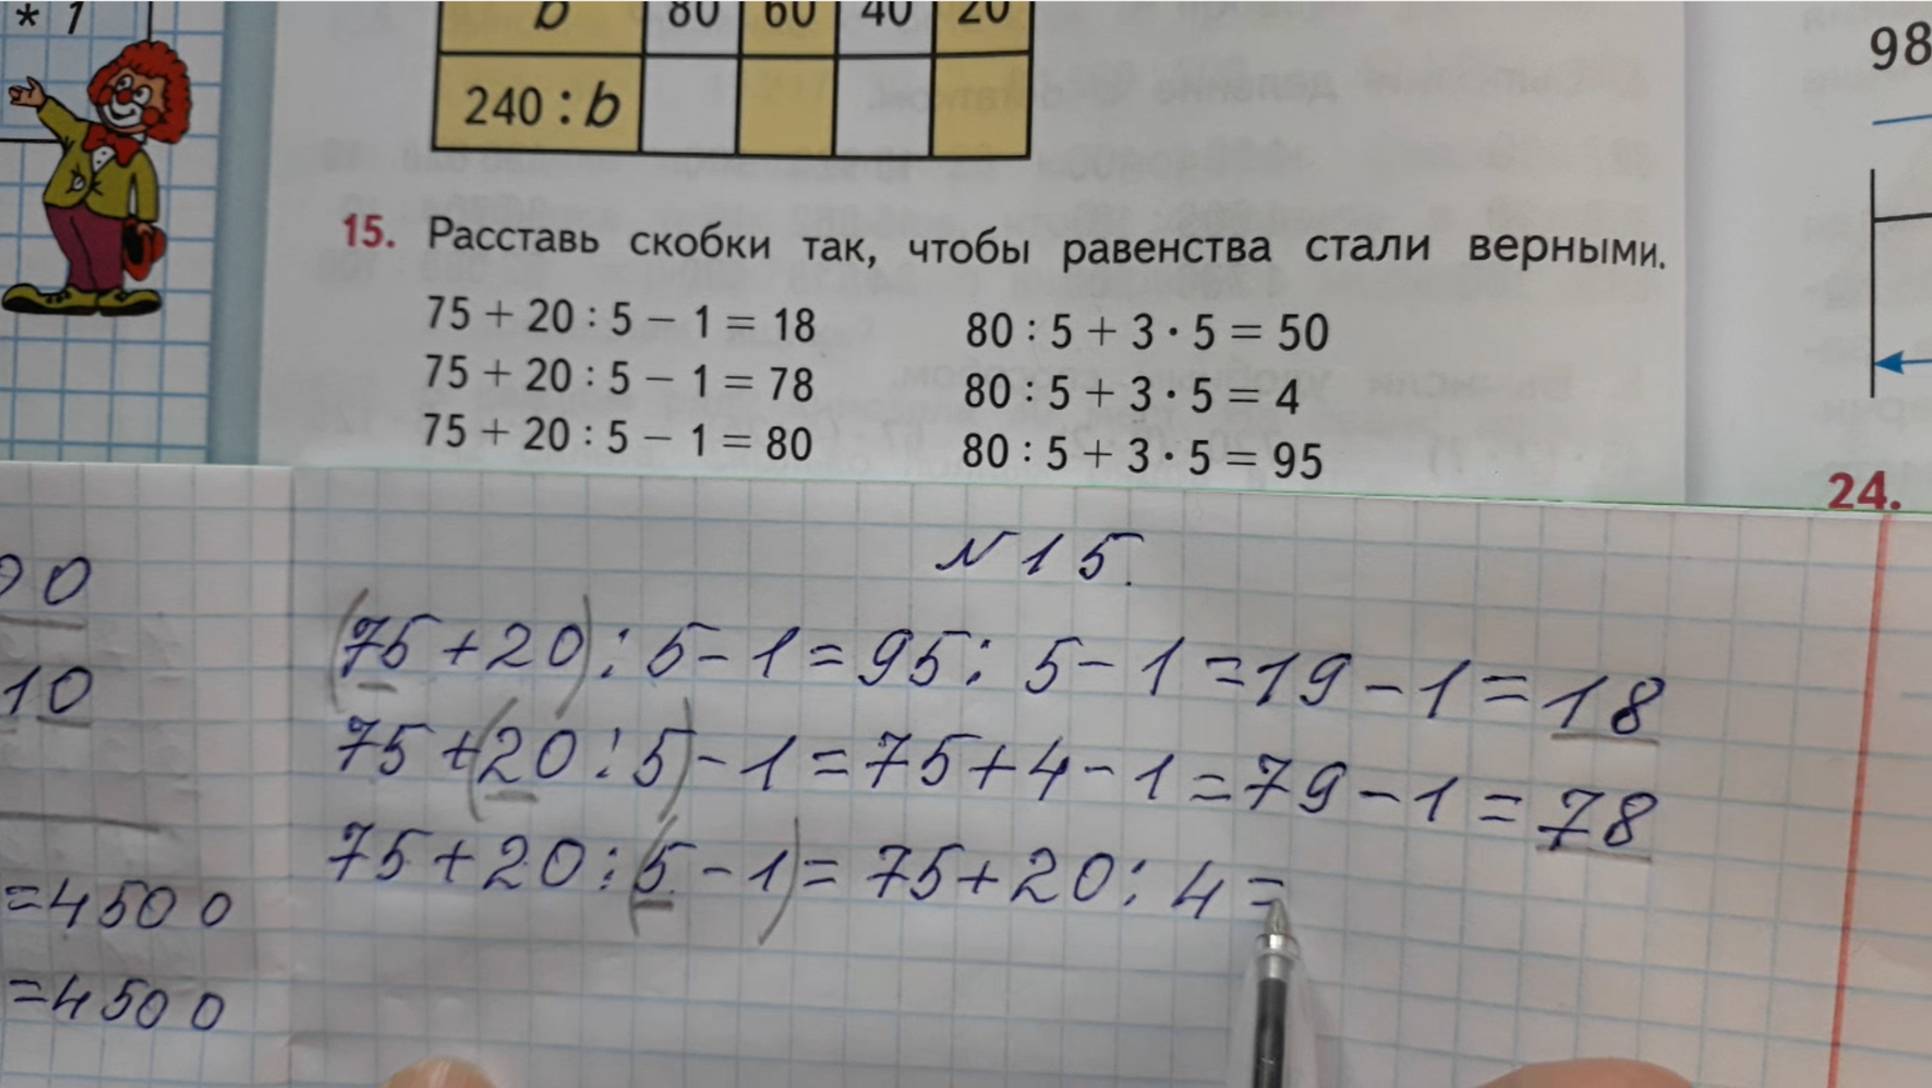 * 1
b 80 60 40 20
240 : b
98
15. Расставь скобки так, чтобы равенства стали верными.
75 + 20 : 5 − 1 = 18
75 + 20 : 5 − 1 = 78
75 + 20 : 5 − 1 = 80
80 : 5 + 3 · 5 = 50
80 : 5 + 3 · 5 = 4
80 : 5 + 3 · 5 = 95
24.
N 15.
(75+20) : 5−1=95 : 5−1=19−1=18
75+(20 : 5)−1=75+4−1=79−1=78
75+20 : (5−1)=75+20 : 4=
00
10
=4500
=4500